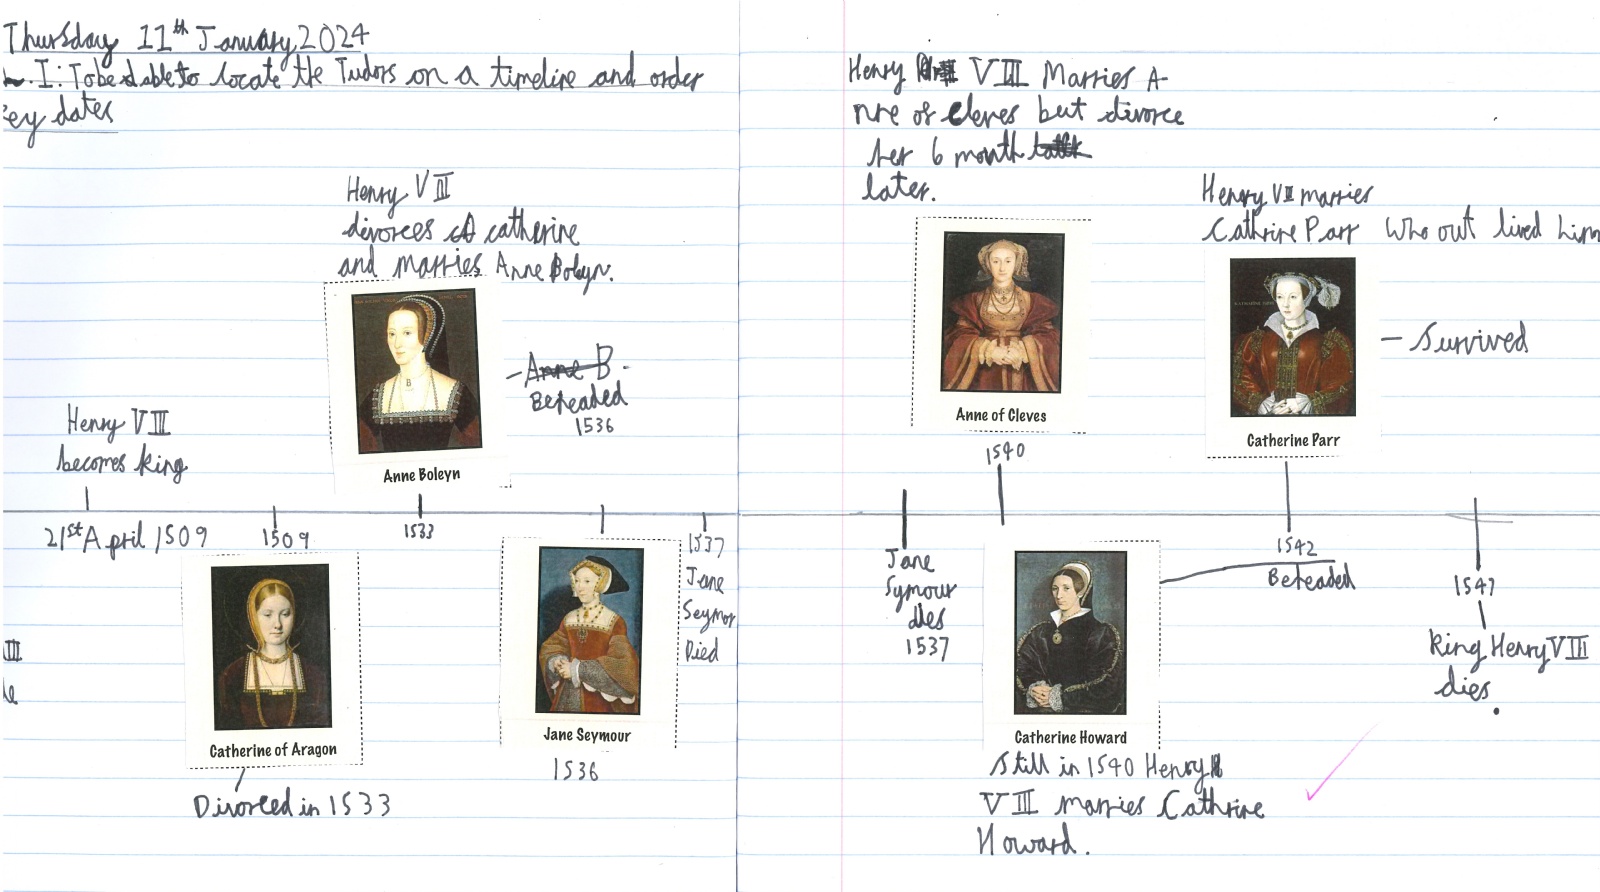 Thursday 11th January 2024
L.I: To be able to locate the Tudors on a timeline and order
key dates
Henry VIII
divorces catherine
and marries Anne Boleyn.
Anne Boleyn
- Anne B -
Beheaded
1536
Henry VIII
becomes king
21st April 1509
1509
1533
Catherine of Aragon
Divorced in 1533
Jane Seymour
1536
1537
Jane
Seymor
Died
III
Henry VIII Marries A
nne of Cleves but divorce
her 6 month
later.
Anne of Cleves
1540
Henry VIII marries
Cathrine Parr who out lived him
Catherine Parr
- Survived
Jane
Symour
dies
1537
Catherine Howard
Still in 1540 Henry
VIII marries Cathrine
Howard.
1542
Beheaded
1547
King Henry VIII
dies.